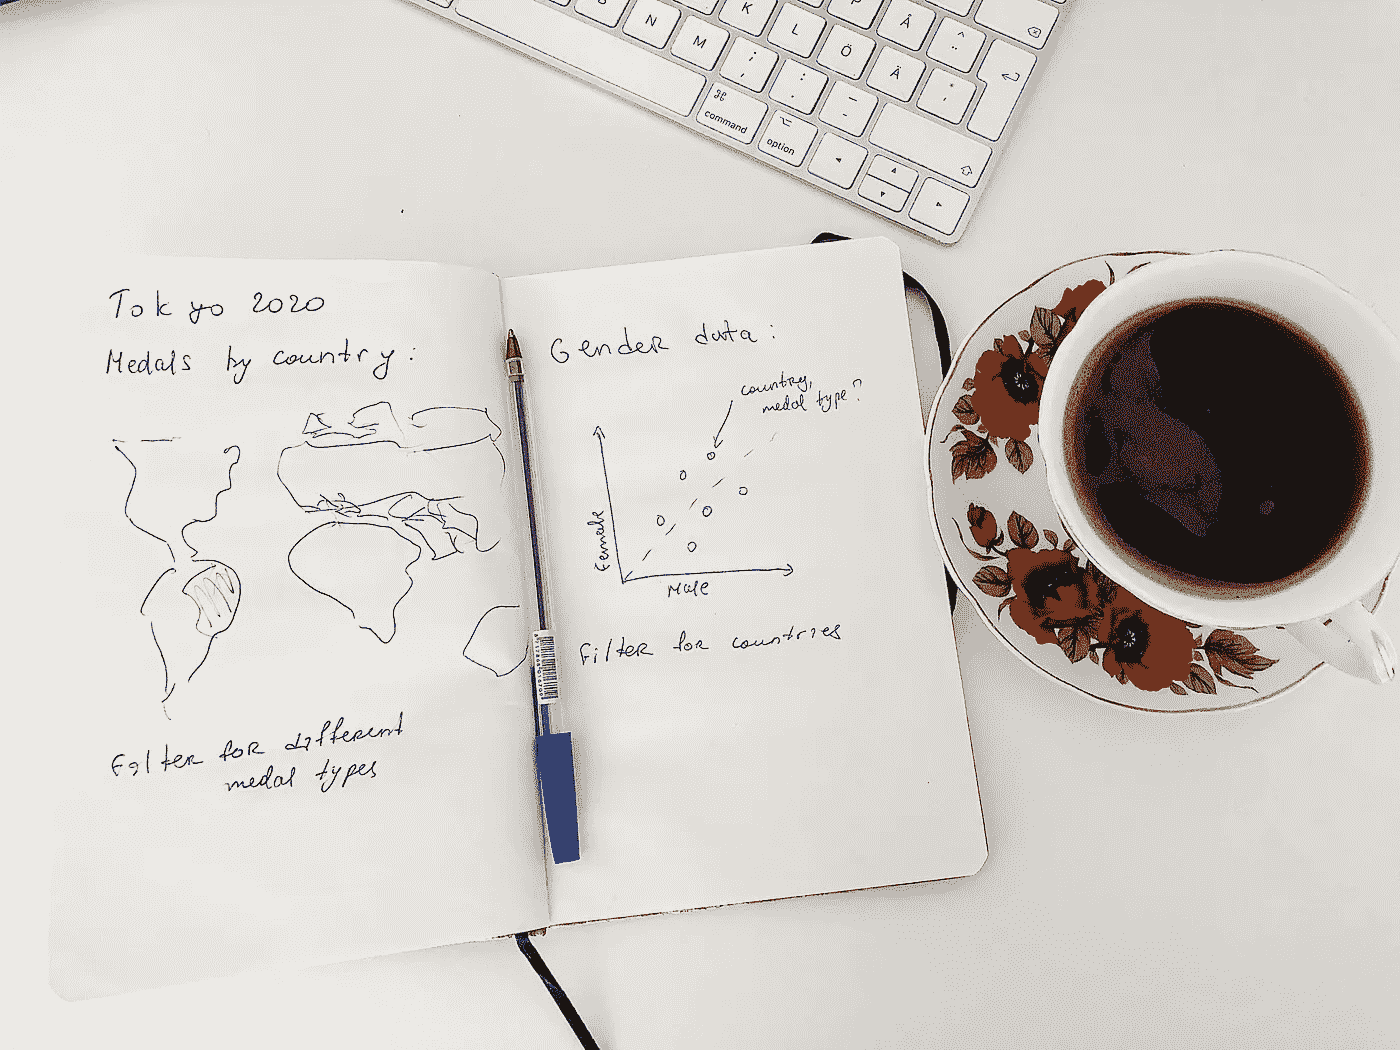 B
N
M
K
L
P
Ö
Å
Ä
^
¨
;
,
:
.
_
-
*
'
⌘
command
⌥
option
Tokyo 2020
Medals by country:
Filter for different
medal types
Gender data:
country,
medal type?
Female
Male
Filter for countries